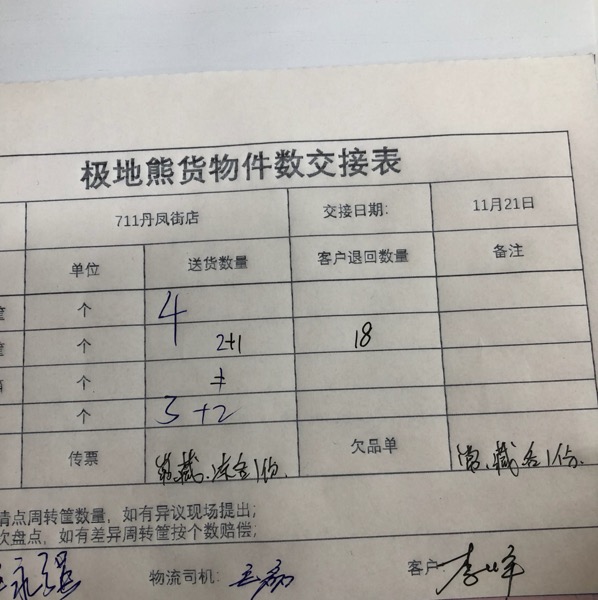 极地熊货物件数交接表
711丹凤街店 交接日期: 11月21日
单位 送货数量 客户退回数量 备注
筐 个 4
筐 个 2+1 18
箱 个
个 3+2
传票 常.藏.冻各1份. 欠品单 常.藏各1份.
清点周转筐数量，如有异议现场提出;
次盘点，如有差异周转筐按个数赔偿;
永强 物流司机: 客户: 李峰